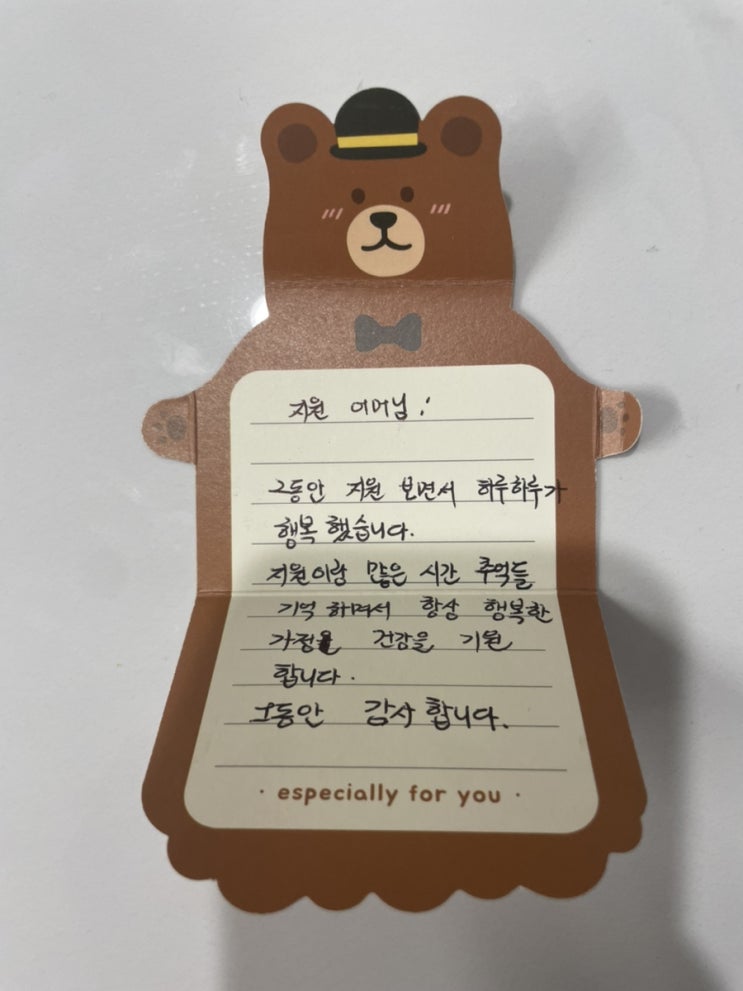 지원 어머님!
그동안 지원 보면서 하루하루가
행복 했습니다.
지원이랑 많은 시간 추억들
기억 하며서 항상 행복한
가정을 건강을 기원
합니다.
그동안 감사 합니다.
· especially for you ·